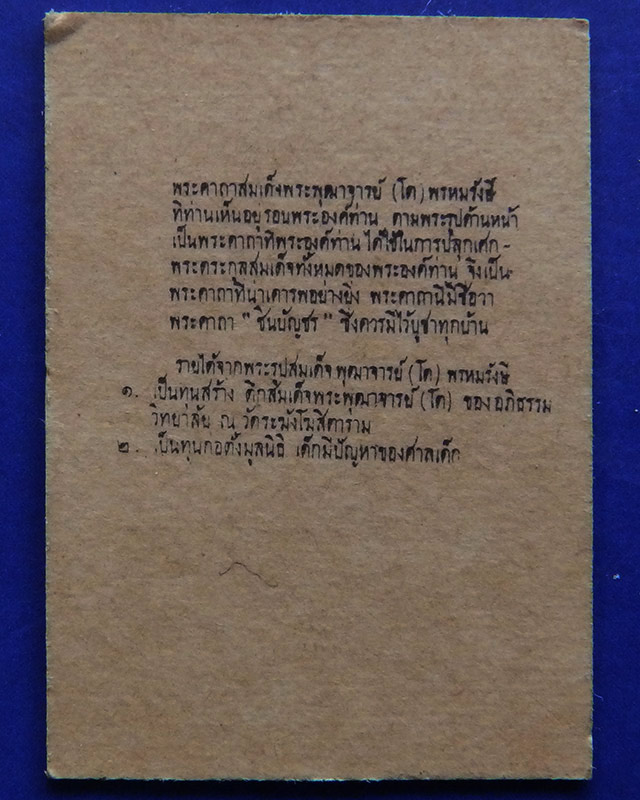 พระคาถาสมเด็จพระพุฒาจารย์ (โต) พรหมรังษี
ที่ท่านเห็นอยู่รอบพระองค์ท่าน ตามพระรูปด้านหน้า
เป็นพระคาถาที่พระองค์ท่านได้ใช้ในการปลุกเศก -
พระตระกูลสมเด็จทั้งหมดของพระองค์ท่าน จึงเป็น-
พระคาถาที่น่าเคารพอย่างยิ่ง พระคาถานี้มีชื่อว่า
พระคาถา " ชินบัญชร " ซึ่งควรมีไว้บูชาทุกบ้าน
รายได้จากพระรูปสมเด็จพุฒาจารย์ (โต) พรหมรังษี
๑. เป็นทุนสร้าง ตึกสมเด็จพระพุฒาจารย์ (โต) ของอภิธรรม
วิทยาลัย ณ วัดระฆังโฆสิตาราม
๒. เป็นทุนก่อตั้งมูลนิธิ เด็กมีปัญหาของศาลเด็ก